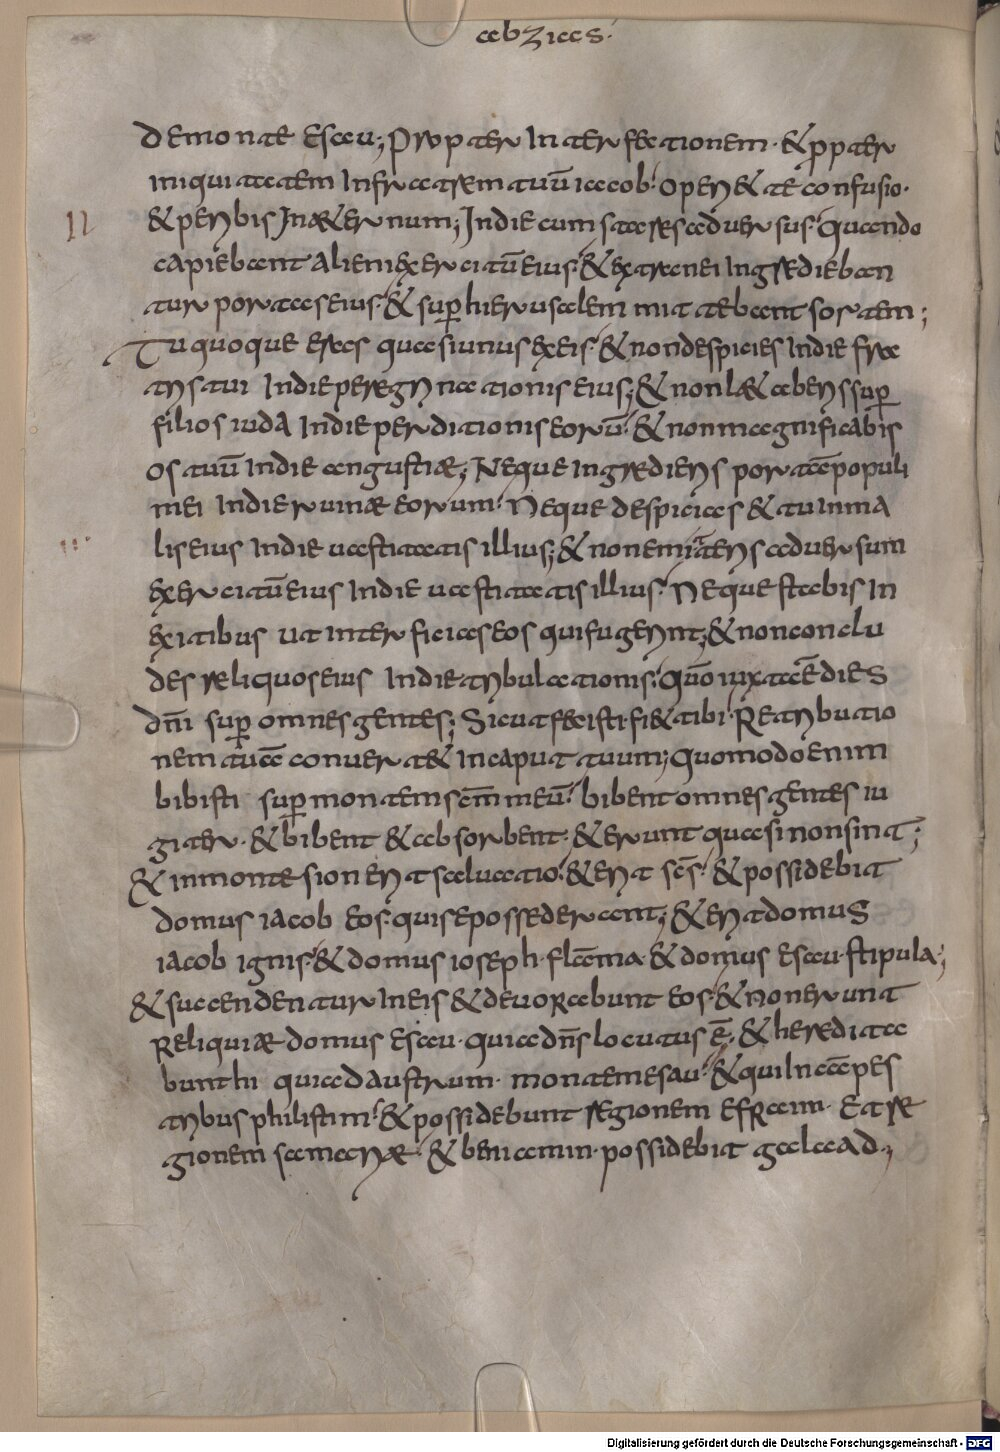 abdias·
de monte esau; Propter interfectionem· & ppter
iniquitatem infratrem tuū iacob· operi& te confusio·
II
& peribis Inaeternum; Indie cum stares aduersus· quando
capiebant alieni exercitū eius· & extranei ingredieban
tur portas eius· & sup hierusalem mittebant sortem;
Tu quoque eras quasi unus exeis· & nondespicies indie fra
tris tui indie peregrinationis eius; & nonlaetaberis sup
filios iuda indie perditionis eorū· & nonmagnificabis
os tuū indie angustiae; Neque ingredieris portā populi
mei indie ruinae eorum· Neque despicies & tu inma
III
lis eius indie uastitatis illius; & nonemitteris aduersum
exercitū eius indie uastitatis illius· Neque stabis in
exitibus ut interficias eos quifugerint; & nonconclu
des reliquos eius indie tribulationis· quō iuxta ē dies
dn̄i sup omnes gentes; Sicut fecisti· fi& tibi· Retributio
nem tuā conuert& incaput tuum; quomodo enim
bibisti sup montem scm̄ meū· bibent omnes gentes iu
giter· & bibent & absorbent· & erunt quasi nonsint;
& inmonte sion erit saluatio· & erit scs̄· & possidebit
domus iacob eos· quise possederant; & erit domus
iacob ignis· & domus ioseph· flāma· & domus esau· stipula;
& succendentur ineis & deuorabunt eos· & non erunt
Reliquiae domus esau· quia dn̄s locutus ē· & heredita
bunt hi quiad austrum· montem esau· & qui in cāpes
tribus philistim· & possidebunt regionem efraim· Et re
gionem samariae· & beniamin· possidebit galaad·,
Digitalisierung gefördert durch die Deutsche Forschungsgemeinschaft - DFG